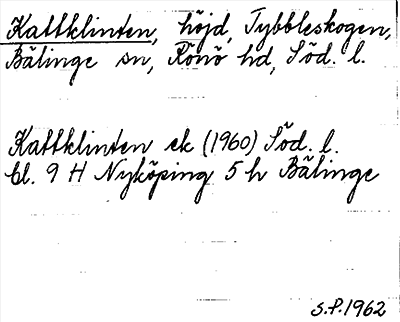 Kattklinten, höjd, Tybbleskogen,
Bälinge sn, Rönö hd, Söd. l.
Kattklinten ek (1960) Söd. l.
bl. 9 H Nyköping 5 h Bälinge
S.P. 1962